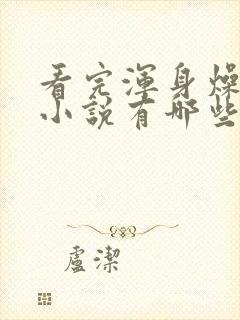 看完渾身燥
小說有哪些
盧潔